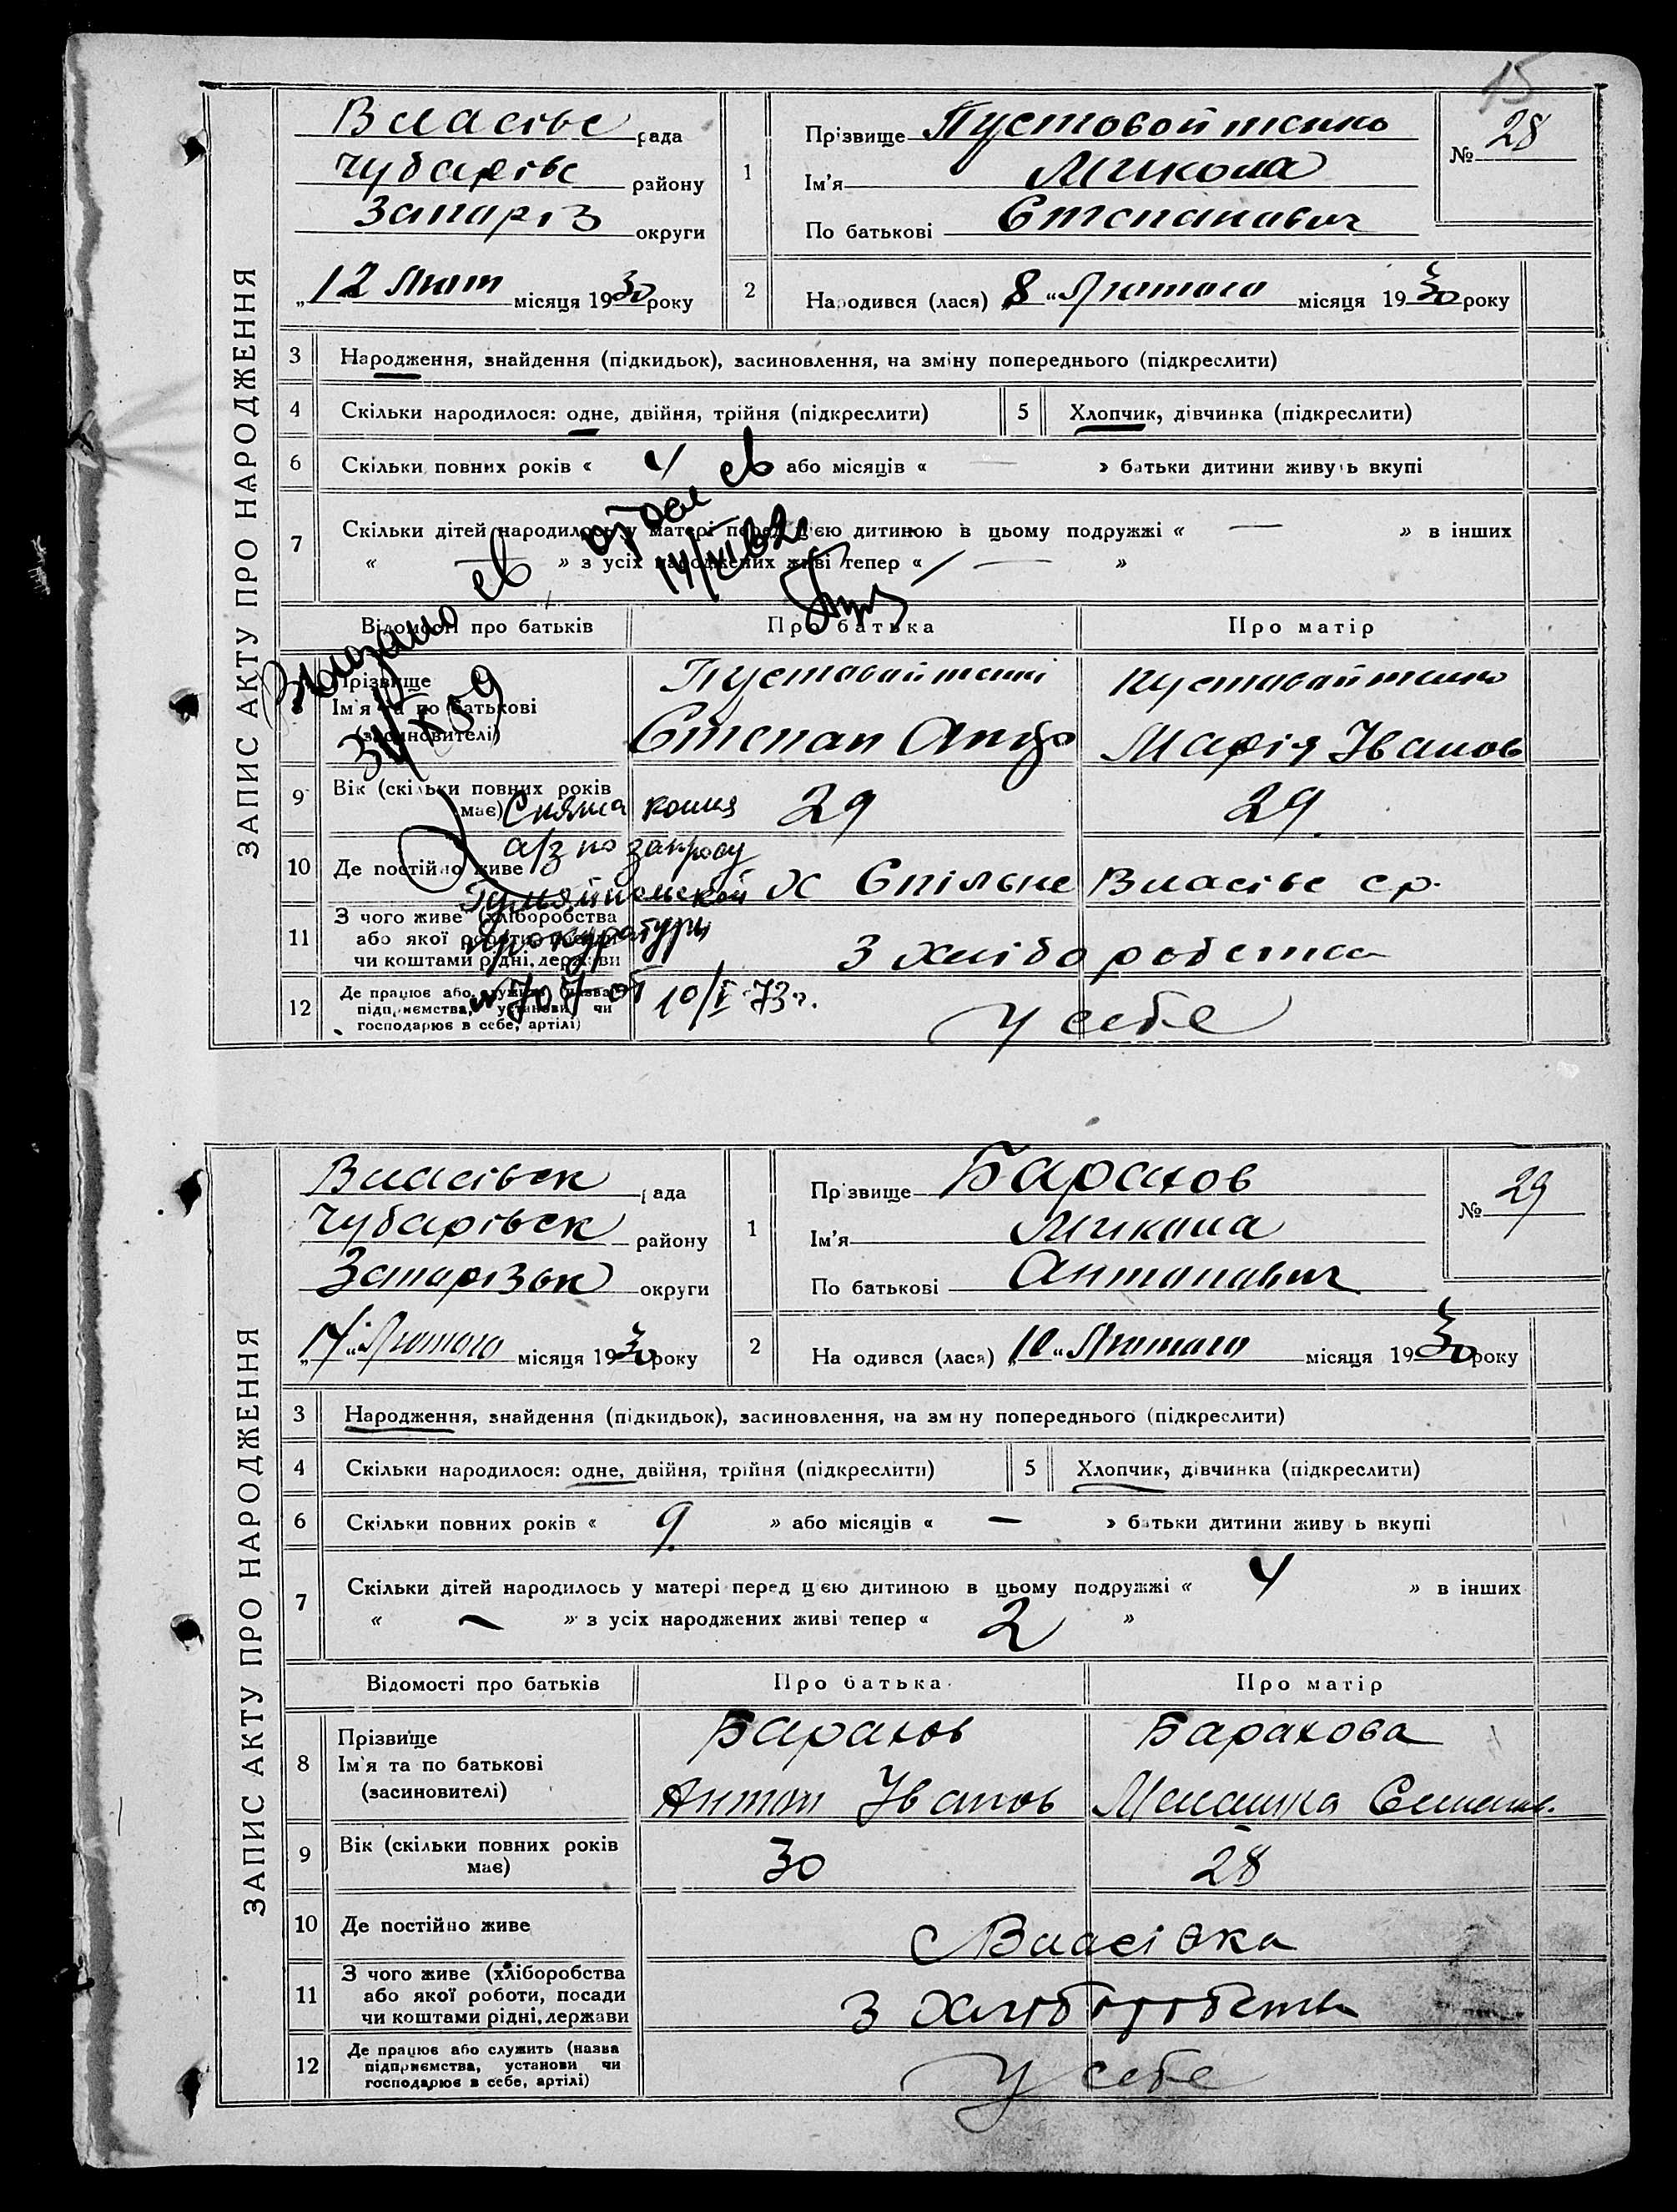 15
ЗАПИС АКТУ ПРО НАРОДЖЕННЯ
Власівс рада
Чубарівс району
Запоріз округи
„12 Лют місяця 1930 року
1 Прізвище Пустовойтенко
Ім'я Микола
По батькові Степанович
№ 28
2 Народився (лася) „8“ Лютого місяця 1930 року
3 Народження, знайдення (підкидьок), засиновлення, на зміну попереднього (підкреслити)
4 Скільки народилося: одне, двійня, трійня (підкреслити) 5 Хлопчик, дівчинка (підкреслити)
6 Скільки повних років « 4 або місяців « — » батьки дитини живуть вкупі
7 Скільки дітей народилось у матері перед цією дитиною в цьому подружжі « — » в інших
« » з усіх народжених живі тепер « — »
14/XI 62
Відомості про батьків Про батька Про матір
8 Прізвище
Ім'я та по батькові
(засновителі)
Пустовойтенко
Степан
Пустовойтенко
Марія Іванов
9 Вік (скільки повних років має) 29 29
Снята копия
а/з по запросу
Гуляйпольской
прокуратуры
№ 707 от 10/I-73 г.
10 Де постійно живе Х Спільне Власівс с.р.
11 З чого живе (хліборобства
або якої роботи, посади
чи коштами рідні, держави
З хліборобства
12 Де працює або служить (назва
підприємства, установи чи
господарює в себе, артілі)
У себе
ЗАПИС АКТУ ПРО НАРОДЖЕННЯ
Власівск рада
Чубарівск району
Запорізьк округи
„17“ Лютого місяця 1930 року
1 Прізвище Барахов
Ім'я Микола
По батькові Антонович
№ 29
2 Народився (лася) „10“ Лютого місяця 1930 року
3 Народження, знайдення (підкидьок), засиновлення, на зміну попереднього (підкреслити)
4 Скільки народилося: одне, двійня, трійня (підкреслити) 5 Хлопчик, дівчинка (підкреслити)
6 Скільки повних років « 9 » або місяців « — » батьки дитини живуть вкупі
7 Скільки дітей народилось у матері перед цією дитиною в цьому подружжі « 4 » в інших
« — » з усіх народжених живі тепер « 2 »
Відомості про батьків Про батька Про матір
8 Прізвище
Ім'я та по батькові
(засиновителі)
Барахов
Антон Іванов
Барахова
Малашка
9 Вік (скільки повних років має) 30 28
10 Де постійно живе с Власівка
11 З чого живе (хліборобства
або якої роботи, посади
чи коштами рідні, держави
З хліборобств
12 Де працює або служить (назва
підприємства, установи чи
господарює в себе, артілі)
У себе